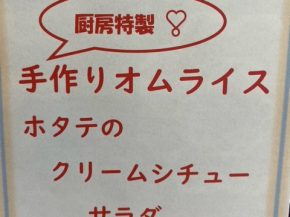 厨房特製♡
手作りオムライス
ホタテの
クリームシチュー
サラダ